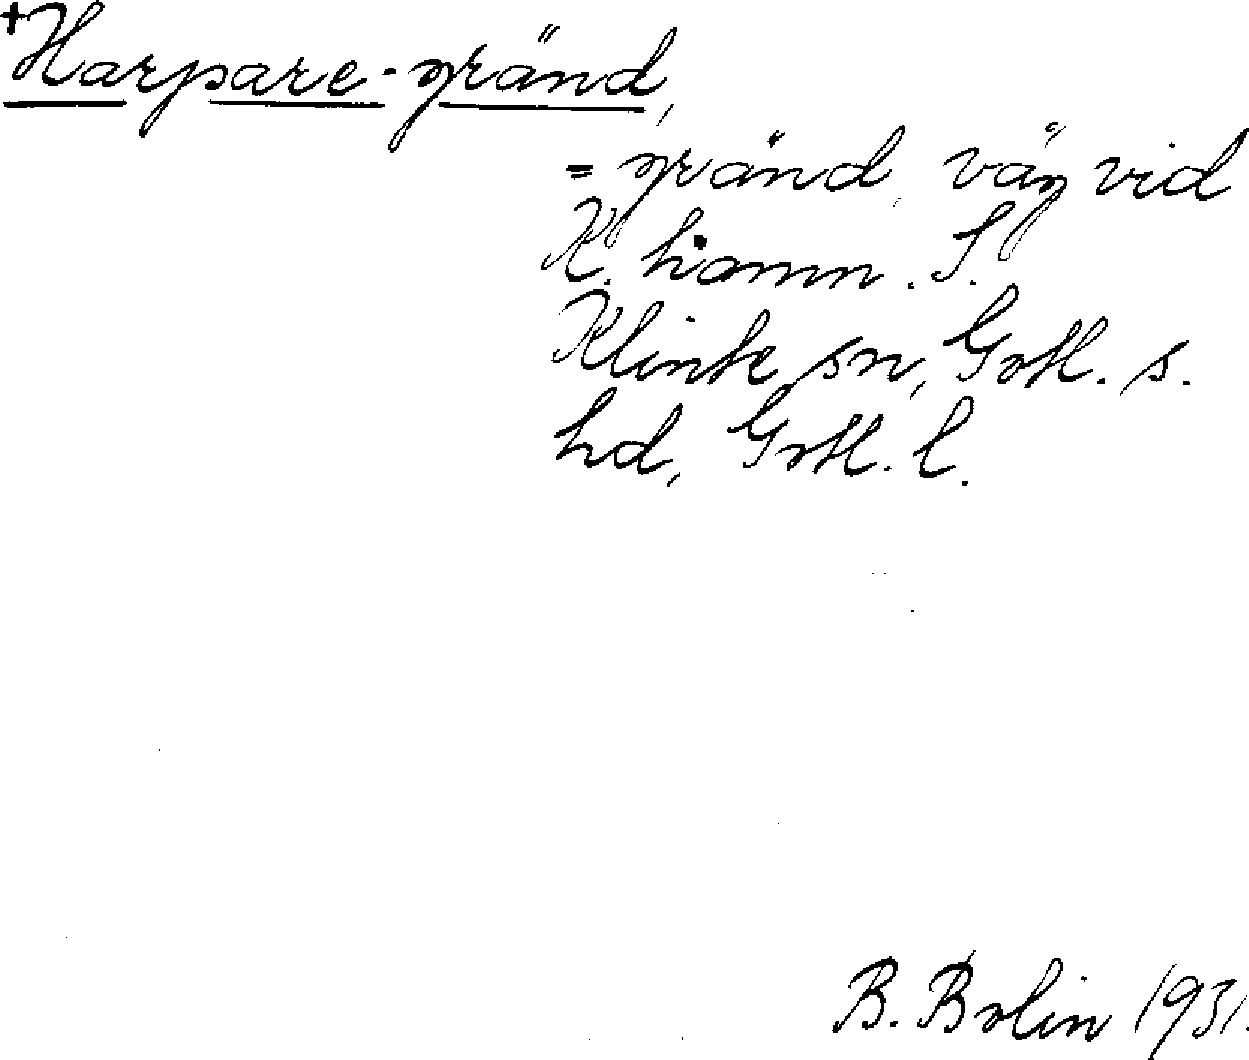 +Harpare-gränd,
= gränd, väg vid
K. hamn. S.
Klinte sn, Gotl. s.
hd, Gotl. l.
B. Bolin 1931.